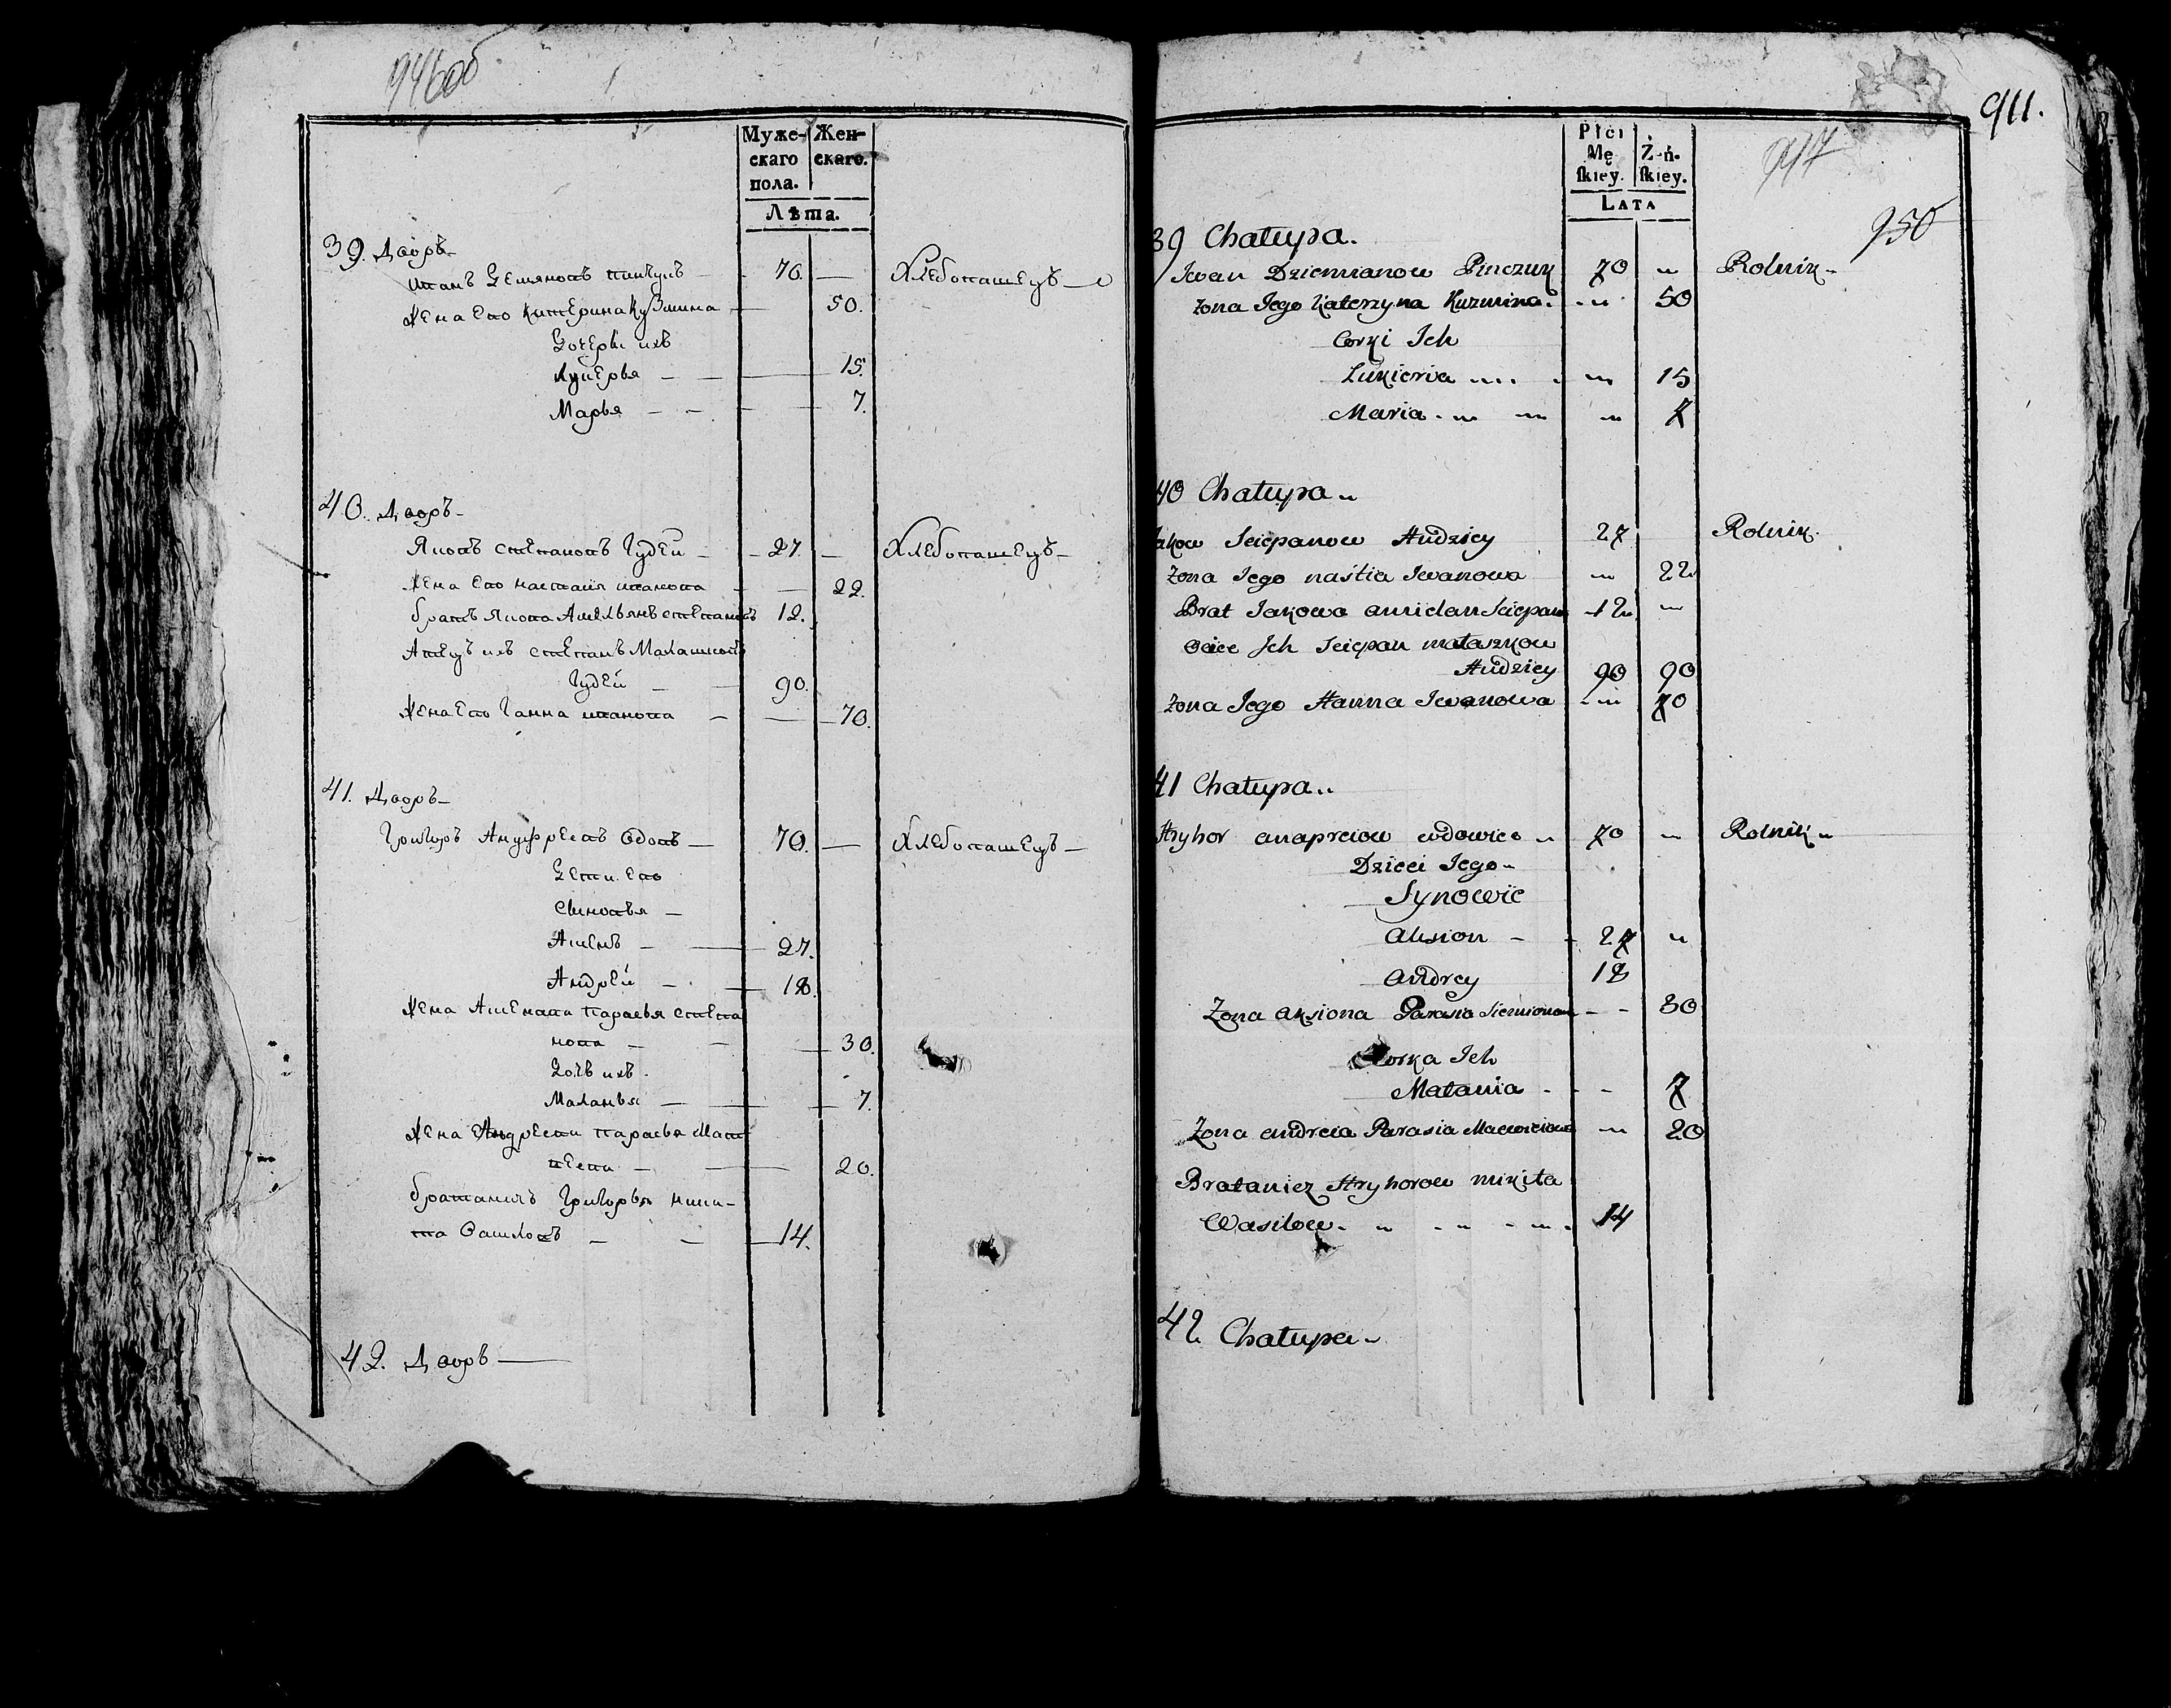 946об
Муже-
скаго
пола.
Жен-
скаго.
Лѣта.
39. Дворъ
Иванъ Демяновъ Пинчукъ — 70. — Хлебопашецъ
Жена Его Катерина Кузмина — 50.
Дочери ихъ
Лукерья — — 15.
Марья — — 7.
40. Дворъ
Яковъ Степановъ Гудей — 27. — Хлебопашецъ
Жена Его Настасия Иванова — 22.
братъ Якова Амельянъ Степановъ 12.
Атецъ ихъ Степанъ Малашковъ
Гудей — 90.
Жена Его Ганна Иванова — 70.
41. Дворъ
Григоръ Ануфреевъ Вдовъ — 70. — Хлебопашецъ
Дети Его
Сыновья —
— 27.
Андрей — 18.
Жена Парасья Степа
нова — 30.
Дочь ихъ
Маланья — 7.
Жена Андреева Парасья Мат
веева — 20.
братаничъ Григорья Ники-
та Василовъ — 14.
42. Дворъ
911.
917
950
Płci
Mę
ſkiey.
Ż-ń-
ſkiey.
LATA
39 Chałupa.
Iwan Dziemianow Pinczuk 70 Rolnik
Zona Jego Katerzyna Kuzmina 50
Corki Ich
Lukieria 15
Maria 7
40 Chałupa
Jakow Sciepanow Hudziey 27 Rolnik
Zona Jego nastia Iwanowa 22
Brat Jakowa amielan Sciepanow 12
Ociec Ich Sciepan mataszkow
Hudziey 90 90
Zona Jego Hanna Iwanowa 70
41 Chałupa
Hryhor anapreiow wdowiec 70 Rolnik
Dzieci Jego
Synowie
Aksion 27
Andrey 18
Zona aksiona Parasia Siemionowa 30
Corka Ich
Małania 7
Zona andreia Parasia Macwieiowa 20
Brataniez Hryhorow mikita
Wasilow 14
42 Chałupa